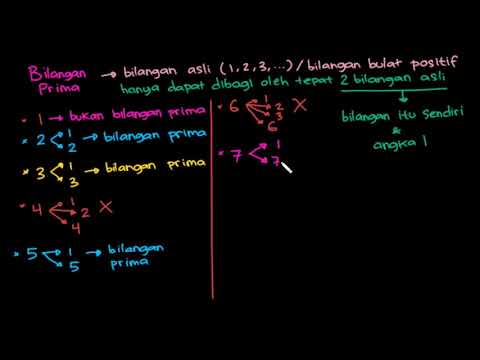 Bilangan Prima → bilangan asli (1,2,3,...) / bilangan bulat positif
hanya dapat dibagi oleh tepat 2 bilangan asli
bilangan itu sendiri
&
angka 1
* 1 → bukan bilangan prima
* 2 1 → bilangan prima
2
* 3 1 → bilangan prima
3
* 4 1
2 X
4
* 5 1 → bilangan
5 prima
* 6 1
2 X
3
6
* 7 1
7